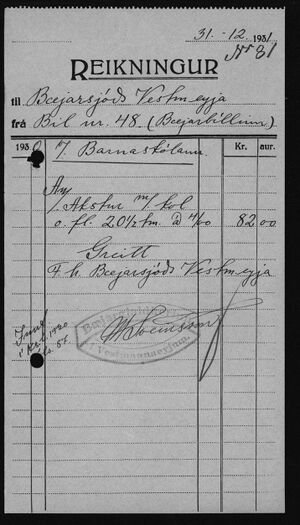 31. -12. 1931
No 81
REIKNINGUR
til Bæjarsjóðs Vestm.eyja
frá Bíl nr. 48. (Bæjarbíllinn)
193 Kr. aur.
F. Barnaskólann.
Akstur m/ kol
o. fl. 20½ tm. @ 4/00 82 00
Greitt
F. h. Bæjarsjóðs Vestm.eyja
Vestmannaeyjum.